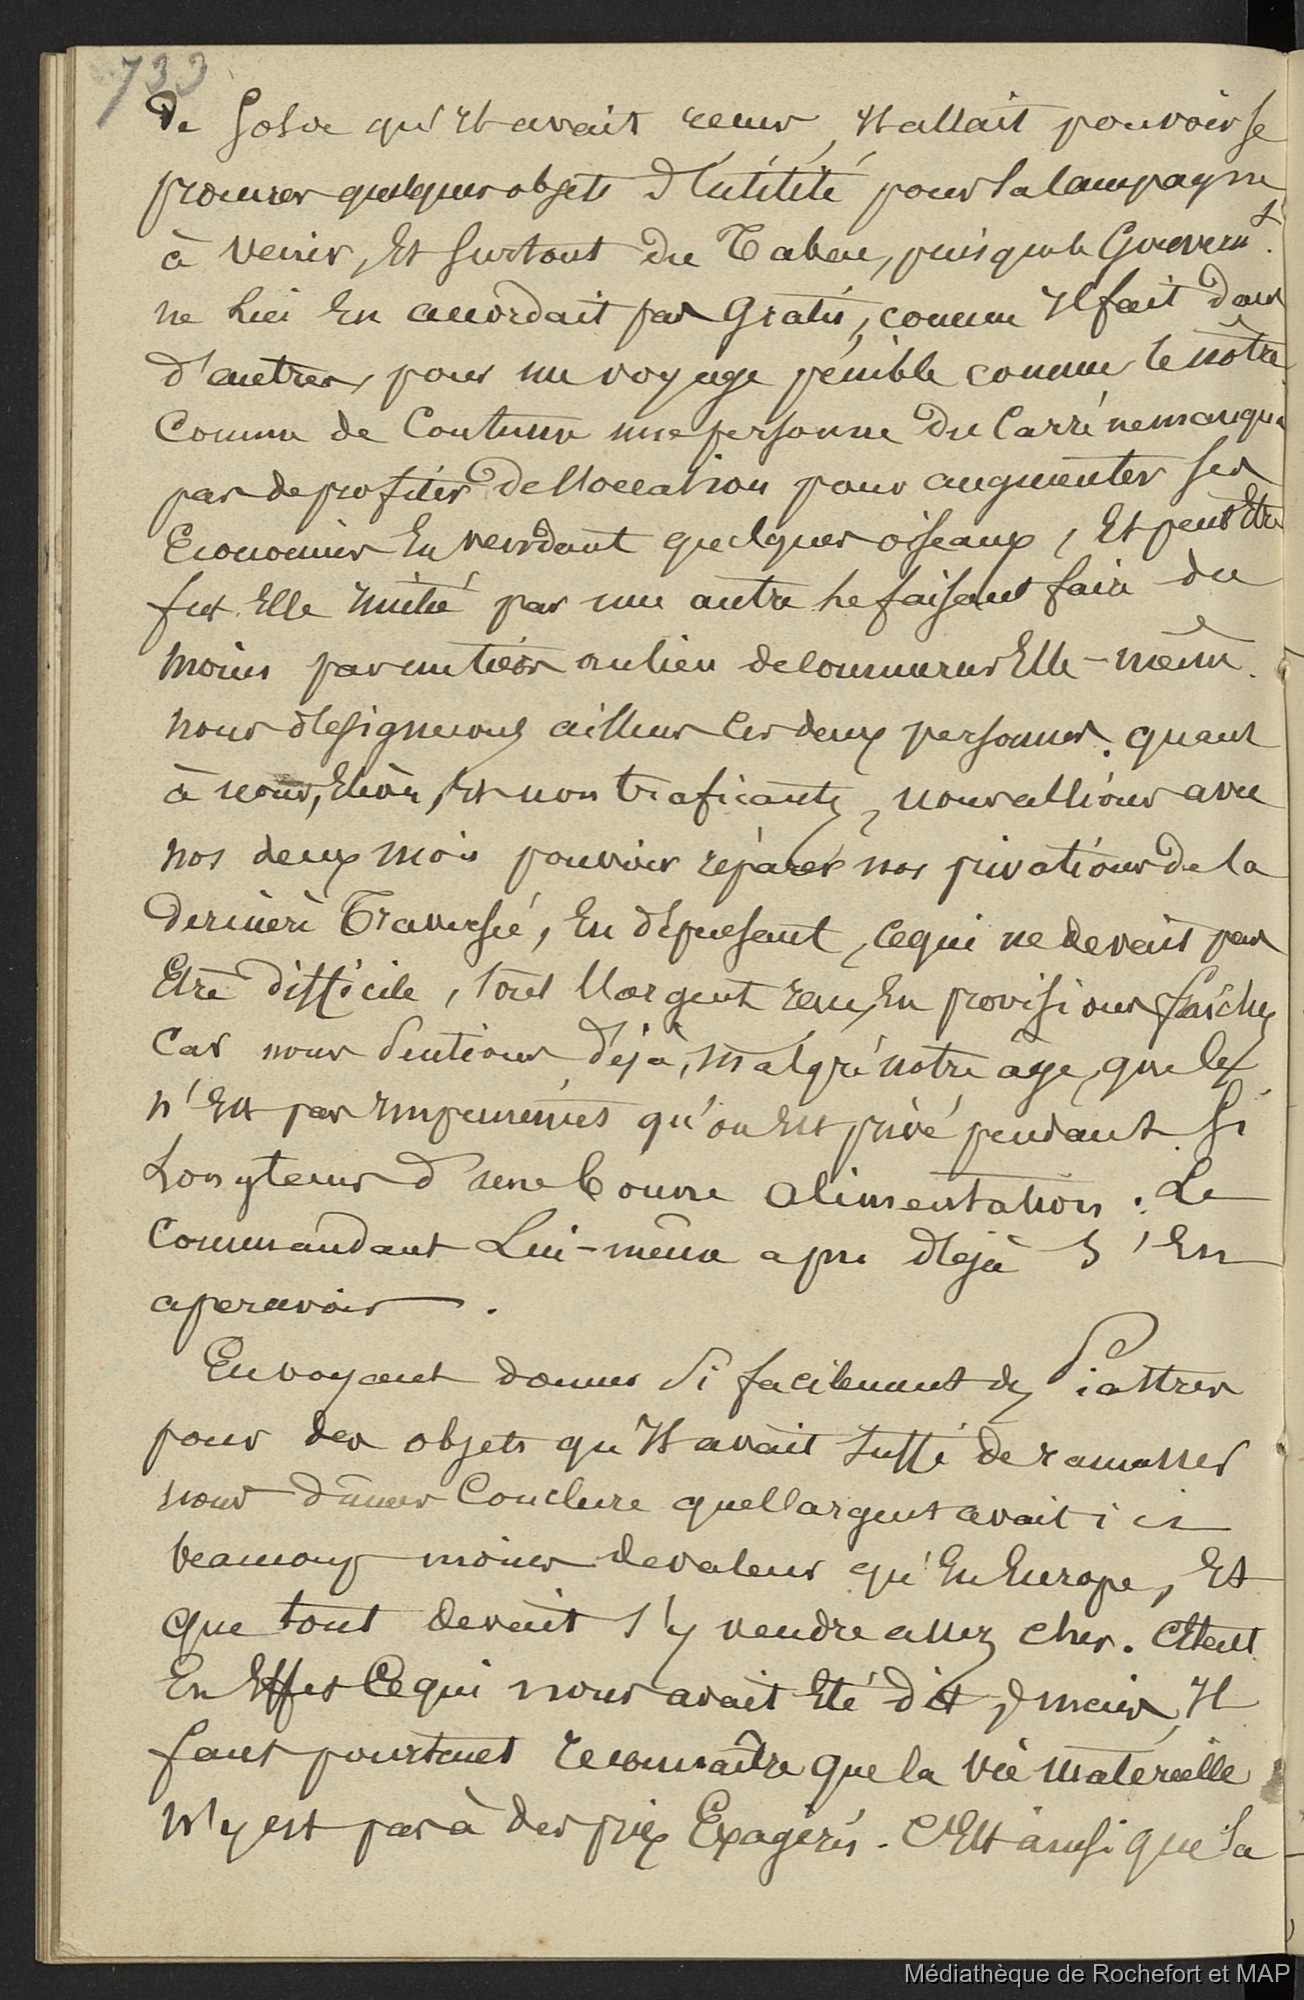 733
de Solde qu'il avait reçue, Il allait pouvoir se
procurer quelques objets d'utilité pour la campagne
à venir, Et Surtout du Tabac, puisque le Gouvernt.
ne lui En accordait pas Gratis, comme Il fait dans
d'autres, pour un voyage pénible comme le nôtre.
Comme de Coutume une personne du Carré ne manqua
pas de profiter de l'occasion pour augmenter ses
Economies En vendant quelques oiseaux, Et peut Etre
fut Elle imité par une autre le faisant faire du
moins par un tiers au lieu de commercer Elle-même.
nous désignerons ailleurs les deux personnes. quant
à nous, Elève, Et non traficants, nous allions avec
nos deux mois pouvoir réparer nos privations de la
dernière Traversée, En dépensant, ce qui ne devait pas
Etre difficile, tout l'argent reçu En provisions fraîches
Car nous Sentions déjà, malgré notre âge, que ce
n'Est pas impunément qu'on Est privé pendant Si
Longtems d'une bonne alimentation. Le
Commandant Lui-même a pu déjà S'En
apercevoir.
En voyant donner Si facilement des Piastres
pour des objets qu'Il avait Suffi de ramasser
nous dûmes Conclure que l'argent avait ici
beaucoup moins de valeur qu'En Europe, Et
que tout devait s'y vendre assez cher. C'était
En Effet Ce qui nous avait Eté dit, mais, Il
faut pourtant reconnaître que la vie matérielle
n'y est pas à des prix Exagérés. C'Est ainsi que la
Médiathèque de Rochefort et MAP